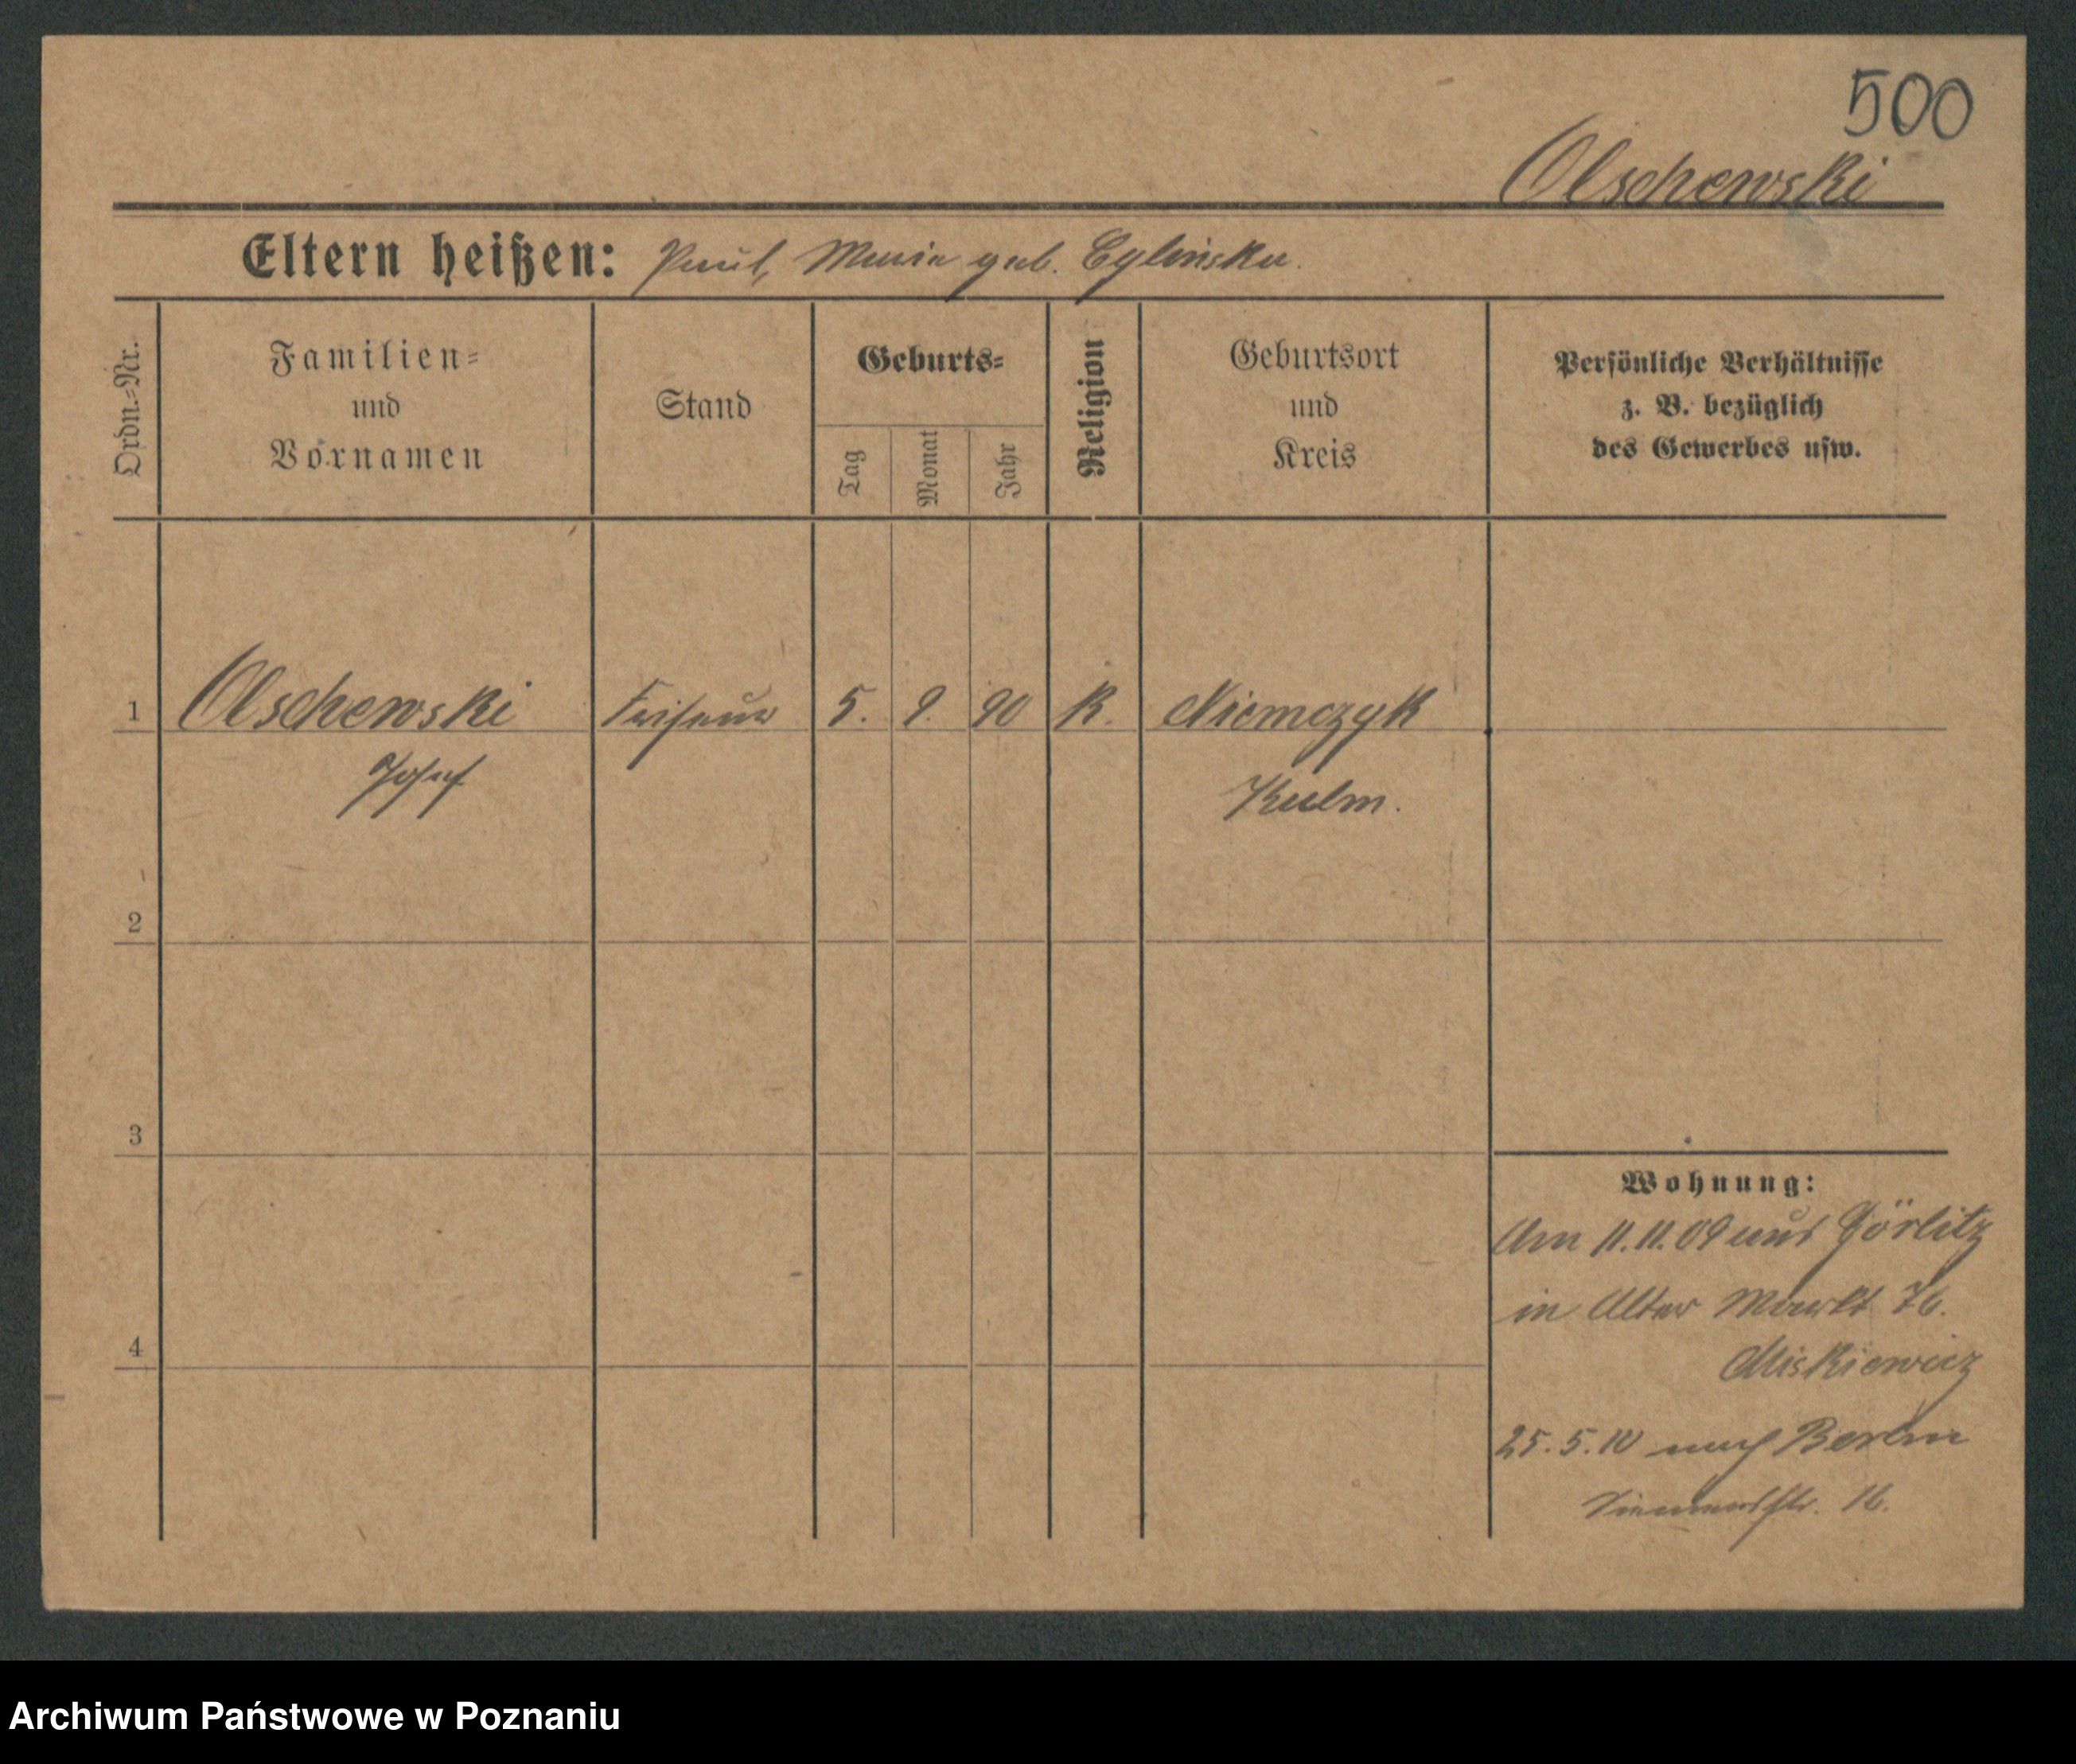 500
Olschewski
Eltern heißen: Paul, Maria geb. Cylinska.
Ordn.-Nr.
Familien-
und
Vornamen
Stand
Geburts-
Tag
Monat
Jahr
Religion
Geburtsort
und
Kreis
Persönliche Verhältnisse
z. B. bezüglich
des Gewerbes usw.
1 Olschewski Friseur 5. 9. 90 K. Niemczyk
Josef Kulm.
2
3
Wohnung:
Am 11.11.09 aus Görlitz
in Alter Markt 76.
4
Miskiewicz
25.5.10 nach Berlin
16.
Archiwum Państwowe w Poznaniu